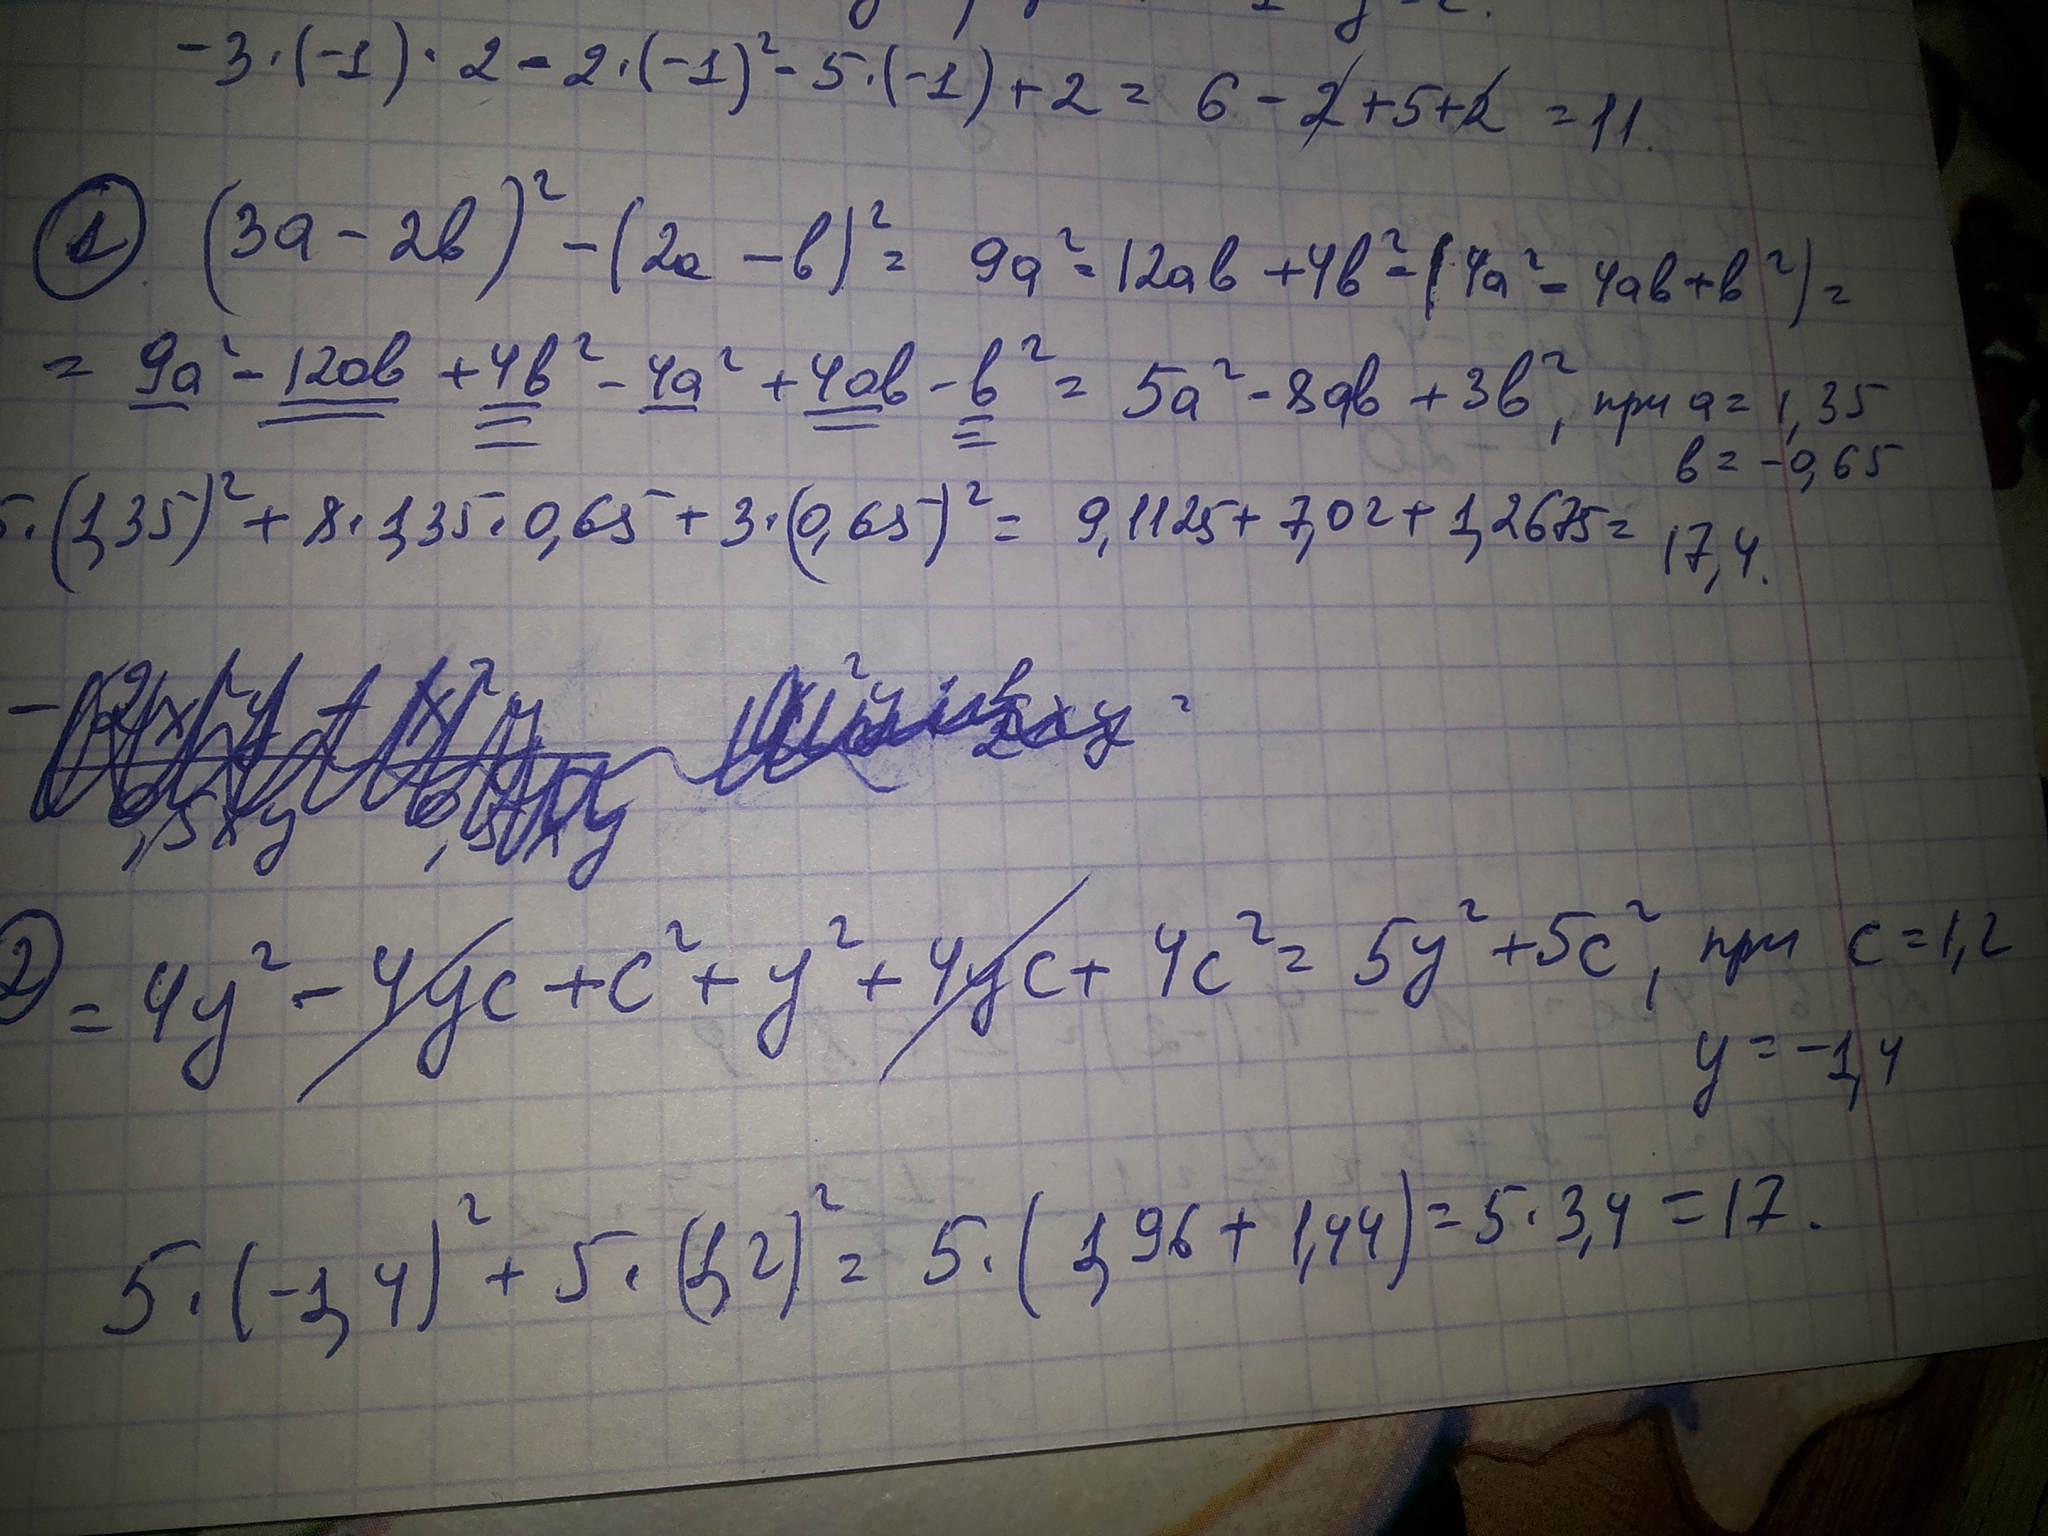 -3·(-1)·2-2·(-1)²-5·(-1)+2=6-2+5+2=11.
① (3a-2b)²-(2a-b)²=9a²-12ab+4b²-(4a²-4ab+b²)=
=9a²-12ab+4b²-4a²+4ab-b²=5a²-8ab+3b², при a=1,35
b=-0,65
5·(1,35)²+8·1,35·0,65+3·(0,65)²=9,1125+7,02+1,2675=17,4.
② =4y²-4yc+c²+y²+4yc+4c²=5y²+5c², при c=1,2
y=-1,4
5·(-1,4)²+5·(1,2)²=5·(1,96+1,44)=5·3,4=17.